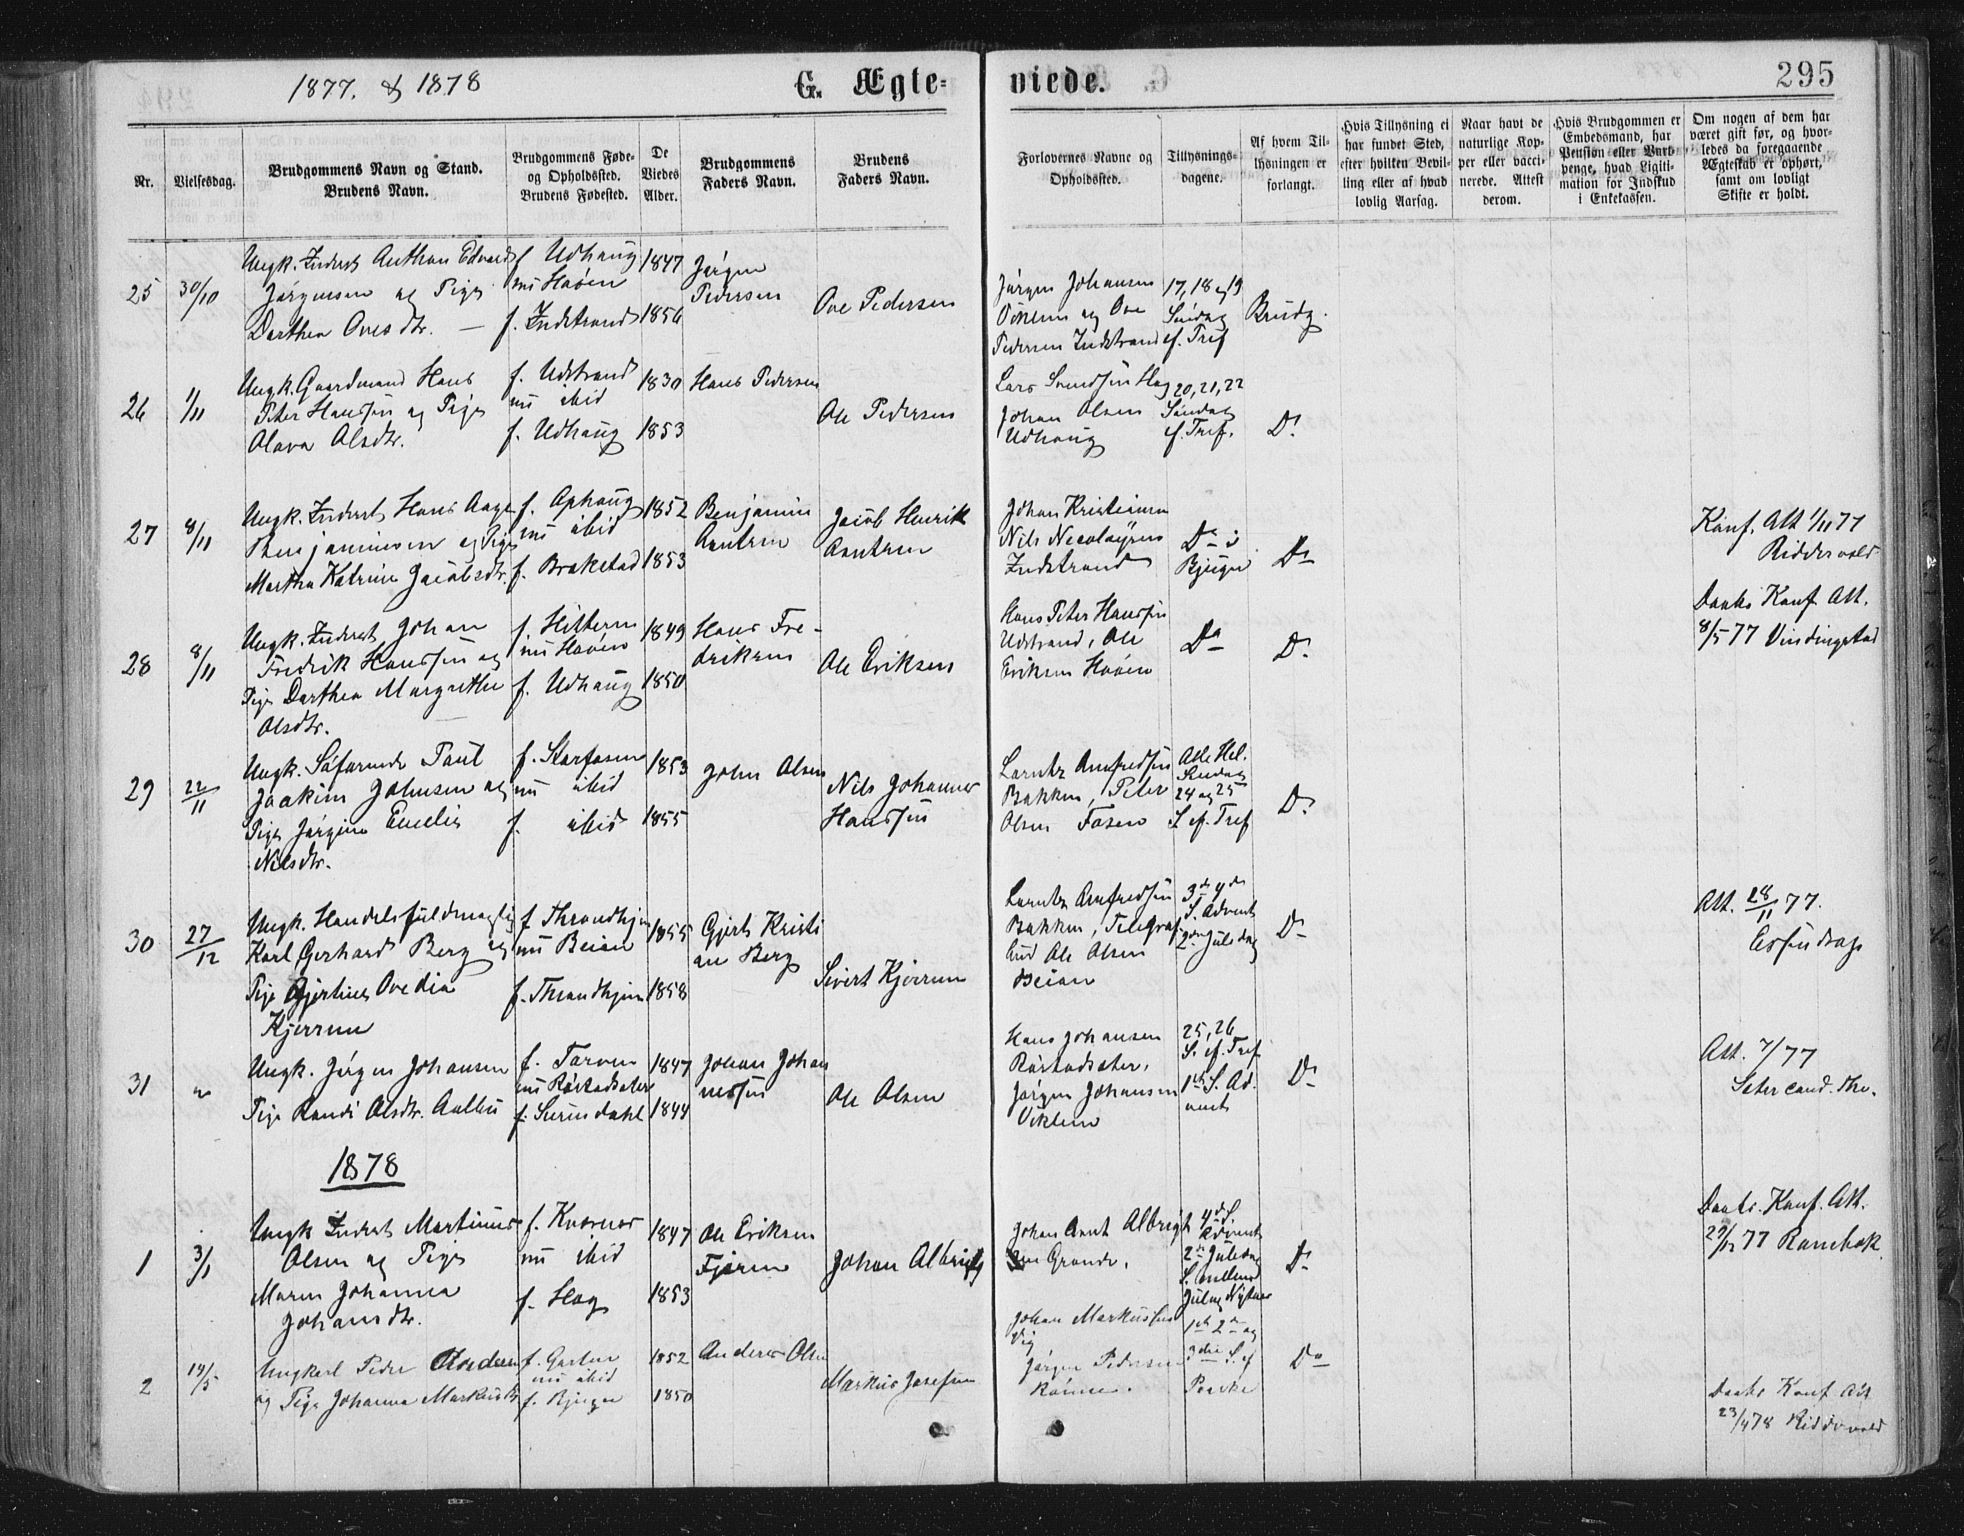 1877. & 1878
G. Ægte-
viede.
295
Nr.
Vielsesdag.
Brudgommens Navn og Stand.
Brudens Navn.
Brudgommens Føde-
og Opholdssted.
Brudens Fødested.
De
Viedes
Alder.
Brudgommens
Faders Navn.
Brudens
Faders Navn.
Forlovernes Navne og
Opholdssted.
Tillysnings-
dagene.
Af hvem Til-
lysningen er
forlangt.
Hvis Tillysning ei
har fundet Sted,
efter hvilken Bevil-
ling eller af hvad
lovlig Aarsag.
Naar havt de
naturlige Kop-
per eller vacci-
nerede. Attest
derom.
Hvis Brudgommen er
Embedsmand, har
Pension eller Vart-
penge, hvad Ligiti-
mation for Indskud
i Enkekassen.
Om nogen af dem har
været gift før, og hvor-
ledes da foregaaende
Ægteskab er ophørt,
samt om lovligt
Skifte er holdt.
25
30/10
Ungk. Inderst Anthon Edvard
Jørgensen og Pige
Darthea Ovesdtr. —
f. Udhaug
nu Hoøen
f. Indstrand
1847
1856
Jørgen
Pedersen
Ove Pedersen
Jørgen Johansen
Viklem og Ove
Pedersen Indstrand
17, 18 og 19
Søndag
ef. Tref
Brudg.
26
1/11
Ungk. Gaardmand Hans
Peter Hanssen og Pige
Olava Olsdtr.
f. Udstrand
nu ibid
f. Udhaug
1830
1853
Hans Pedersen
Ole Pedersen
Lars Svendsen Hag
Johan Olsen
Udhaug
20, 21, 22
Søndag
ef. Tref.
Do
27
8/11
Ungk. Inderst Hans Aage
Benjaminsen og Pige
Martha Katrine Jacobsdtr.
f. Ophaug
nu ibid
f. Brekstad
1852
1853
Benjamin
Arntzen
Jacob Henrik
Arntzen
Johan Kristiansen
Nils Nicolaysen
Indstrand
Do i
Bjugn
Do
Konf. Att 1/11 77
Riddervold
28
8/11
Ungk. Inderst Johan
Fredrik Hanssen og
Pige Darthea Margrethe
Olsdtr.
f. Hitteren
nu Hoøen
f. Udhaug
1849
1850
Hans Fre-
driksen
Ole Eriksen
Hans Peter Hanssen
Udstrand, Ole
Eriksen Hoøen
Do
Do
Daabs Konf. Att.
8/5 77 Vindingstad
29
22/11
Ungk. Søfarende Paul
Joakim Johnsen og
Pige Jørgine Emelie
Nilsdtr.
f. Storfosen
nu ibid
f. ibid
1853
1855
John Olsen
Nils Johannes
Hanssen
Lorntz Arnfredsen
Bakken, Peter
Olsen Fosen
Alle Hel.
Søndag
24 og 25
S. ef. Tref
Do
30
27/12
Ungk. Handelsfuldmægtig
Karl Gerhard Berg og
Pige Gjertine Ovedia
Kjerrem
f. Throndhjem
nu Beian
f. Throndhjem
1855
1858
Gjert Kristi
an Berg
Sivert Kjerrem
Lorntz Arnfredsen
Bakken, Telegraf
bud Ole Olsen
Beian
3de 4de
S. Advent
2den Juledag
Do
Att. 28/11 77.
31
"
Ungk. Jørgen Johansen
Pige Randi Olsdtr. Aalbu
f. Tarven
nu Røstadsæter
f. Surendahl
1847
1844
Johan Johan
nessen
Ole Olsen
Hans Johansen
Røstadsæter.
Jørgen Johansen
Viklem
25, 26
S. ef. Tref
1ste S. Ad.
vent
Do
Att. 7/ 77
Seter cand. the.
1878
1
3/1
Ungk Inderst Martinus
Olsen og Pige
Maren Johanna
Johansdtr.
f. Kvernes
nu ibid
f. Hag
1847
1853
Ole Eriksen
Fjeren
Johan Albrigts
Johan Arnt Albrigt
sen Grande.
4de S.
Advent
2den Juledag
S. mellem
Jul og Nytaar
Do
Daabs. Konf. Att.
29/12 77 Rambek.
2
14/5
Ungkarl Peder Andersen
og Pige Johanna Markusdtr
f. Garten
nu ibid
f. Bjugn
1852
1850
Anders Olsen
Markus Josefsen
Johan Markussen
Vig
Jørgen Pedersen
1ste 2den og
3die S. ef
Paaske
Do
Daabs Konf Att
23/4 78 Riddervold